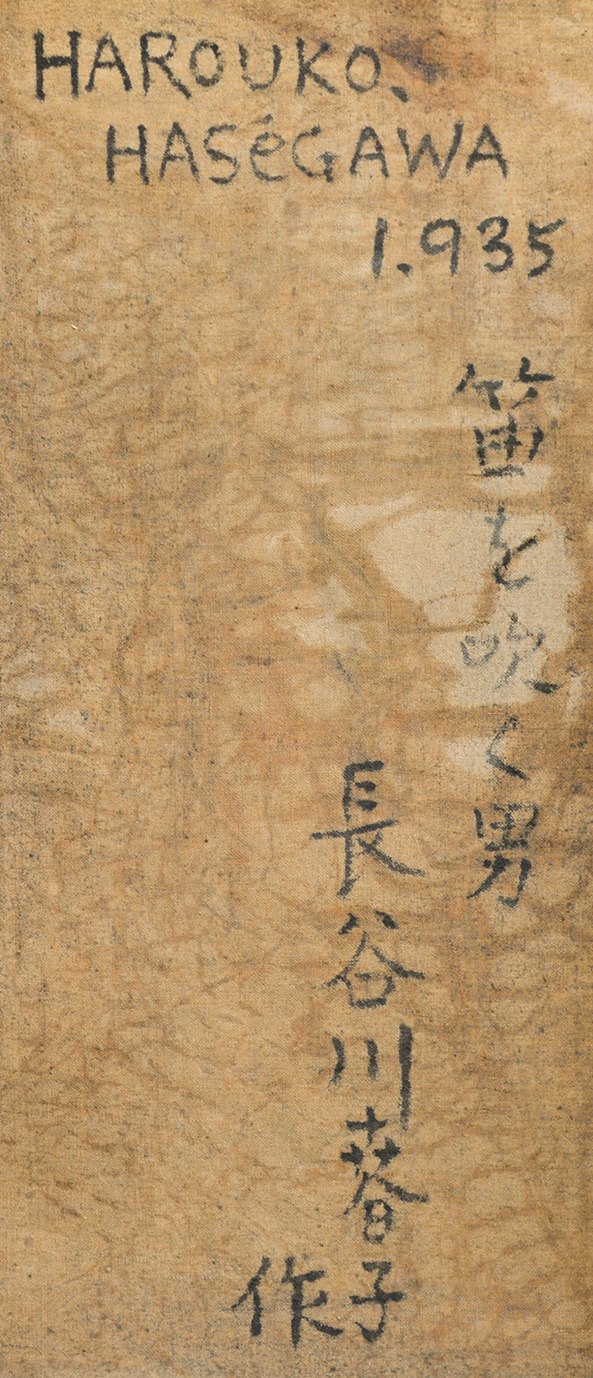 HAROUKO.
HASéGAWA
1.935
笛を吹く男
長谷川春子
作